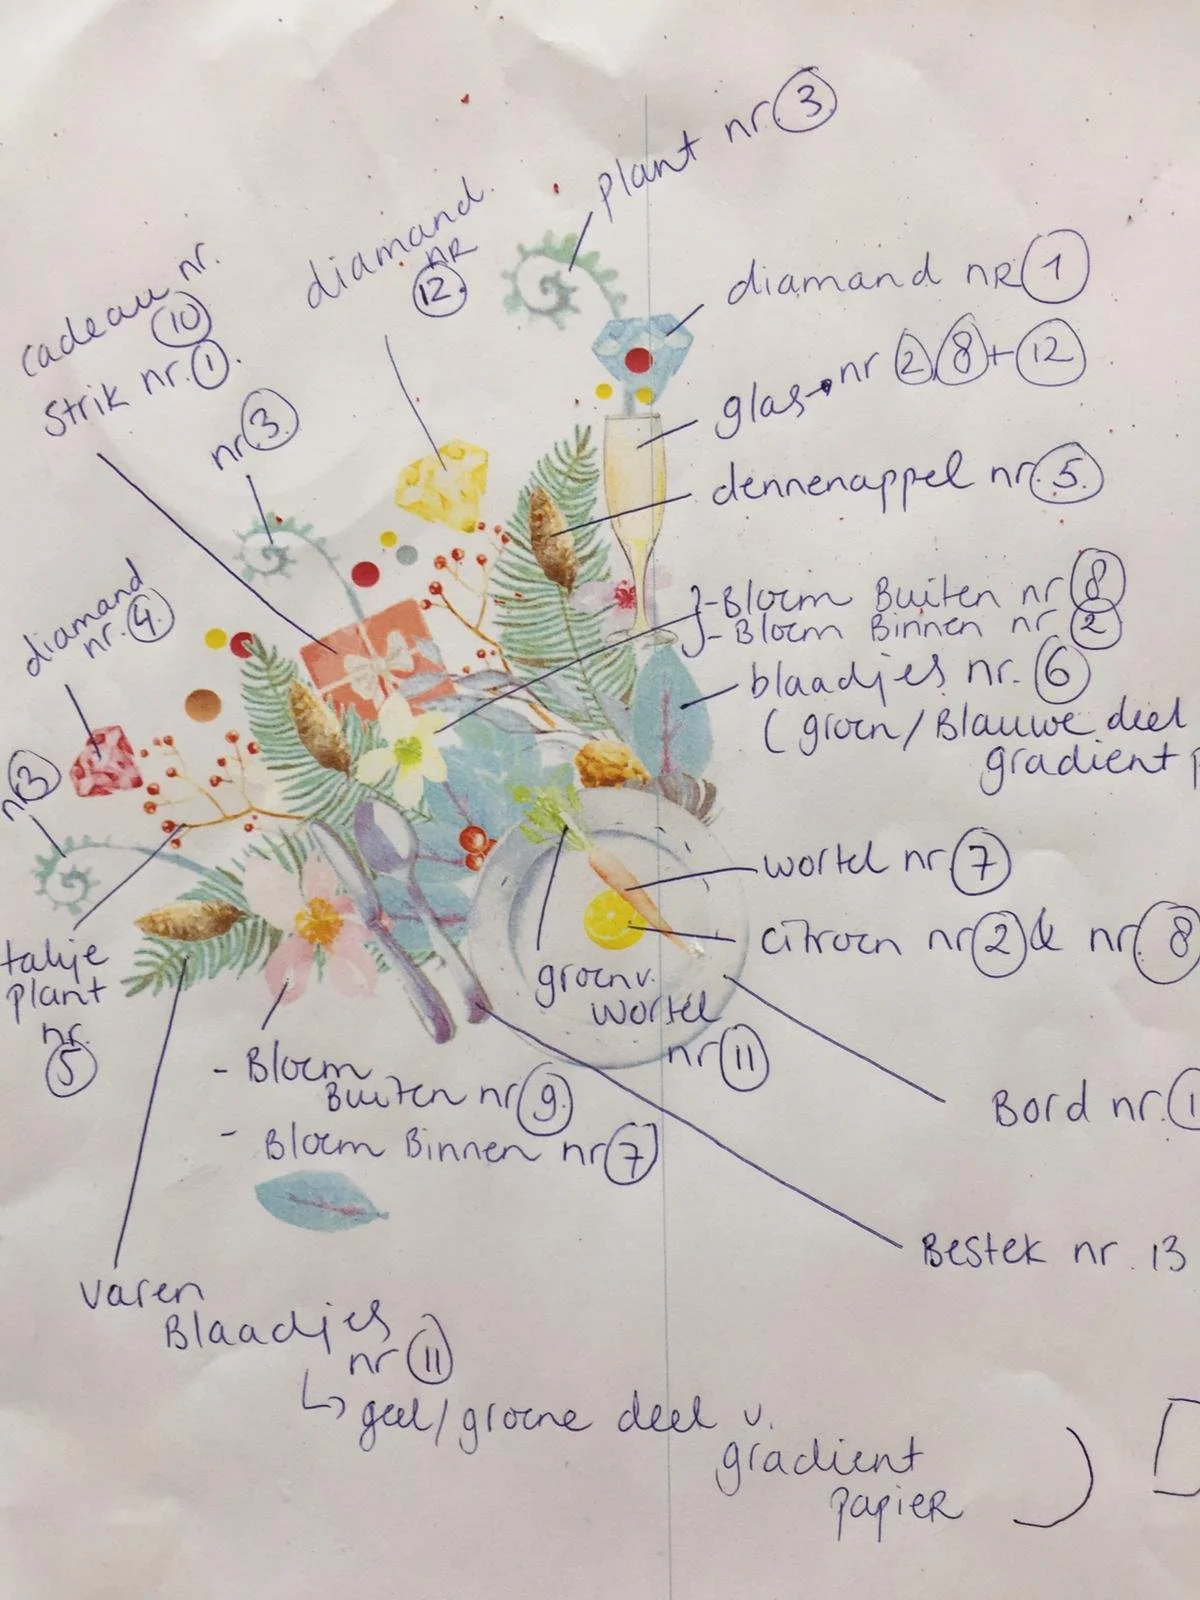 plant nr. 3
diamand
nr
12.
cadeau nr.
10
Strik nr. 1.
nr 3.
diamand nr 1
glas → nr 2, 8 + 12
dennenappel nr. 5.
- Bloem Buiten nr 8
- Bloem Binnen nr 2
diamand
blaadjes nr. 6
( groen / Blauwe deel
gradient
nr 3
wortel nr 7
citroen nr 2 & nr 8
takje
plant
nr.
5
groen v.
wortel
nr 11
Bord nr. 1
- Bloem
Buiten nr 9.
- Bloem Binnen nr 7
Bestek nr. 13
varen
Blaadjes
nr 11
↳ geel / groene deel v.
gradient
papier